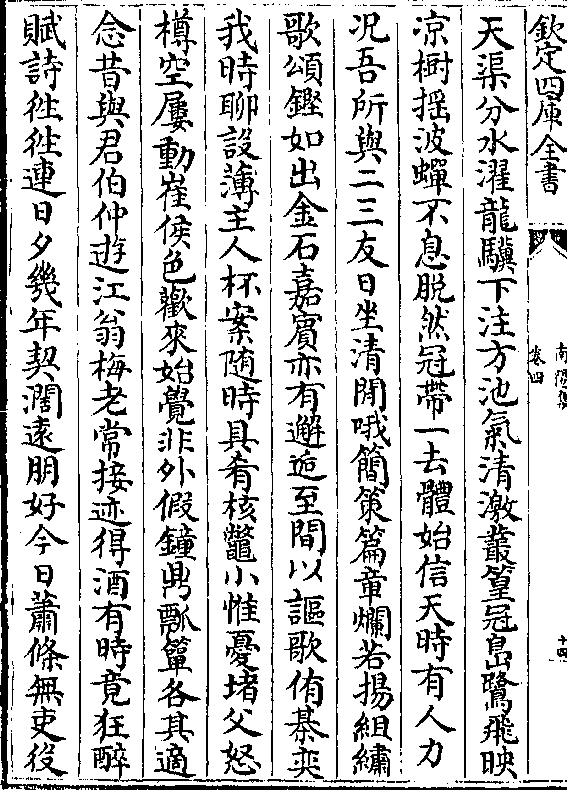 欽定四庫全書
南陽集
卷四
十四
天渠分水濯龍驥下注方池氣清激叢篁冠島鷺飛映
凉樹揺波蟬不息脱然冠帶一去體始信天時有人力
况吾所與二三友日坐清閒哦簡策篇章爛若揚組繡
歌頌鏗如出金石嘉賓亦有邂逅至間以謳歌侑棊奕
我時聊設薄主人杯案随時具肴核鼈小惟憂堵父怒
樽空屢動崔侯色歡來始覺非外假鐘鼎瓢簞各其適
念昔與君伯仲遊江翁梅老常接迹得酒有時竟狂醉
賦詩徃徃連日夕幾年契濶遠朋好今日蕭條無吏役